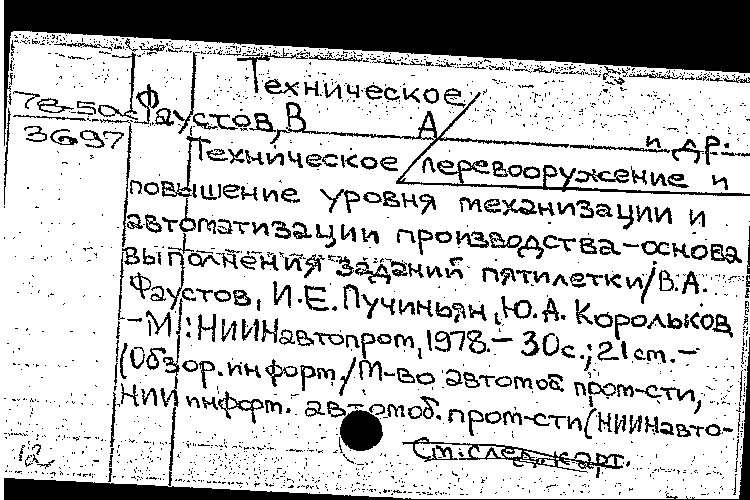 Техническое
7в-50с Фаустов, В А и др.
3697
Техническое перевооружение и
повышение уровня механизации и
автоматизации производства-основа
выполнения заданий пятилетки/В.А.
Фаустов, И.Е.Пучиньян, Ю.А. Корольков
-М.:НИИНавтопром, 1978.- 30с.; 21см.-
(Обзор.информ./М-во автомоб пром-сти,
НИИ информ. автомоб. пром-сти(НИИНавто-
См.след.карт.
12